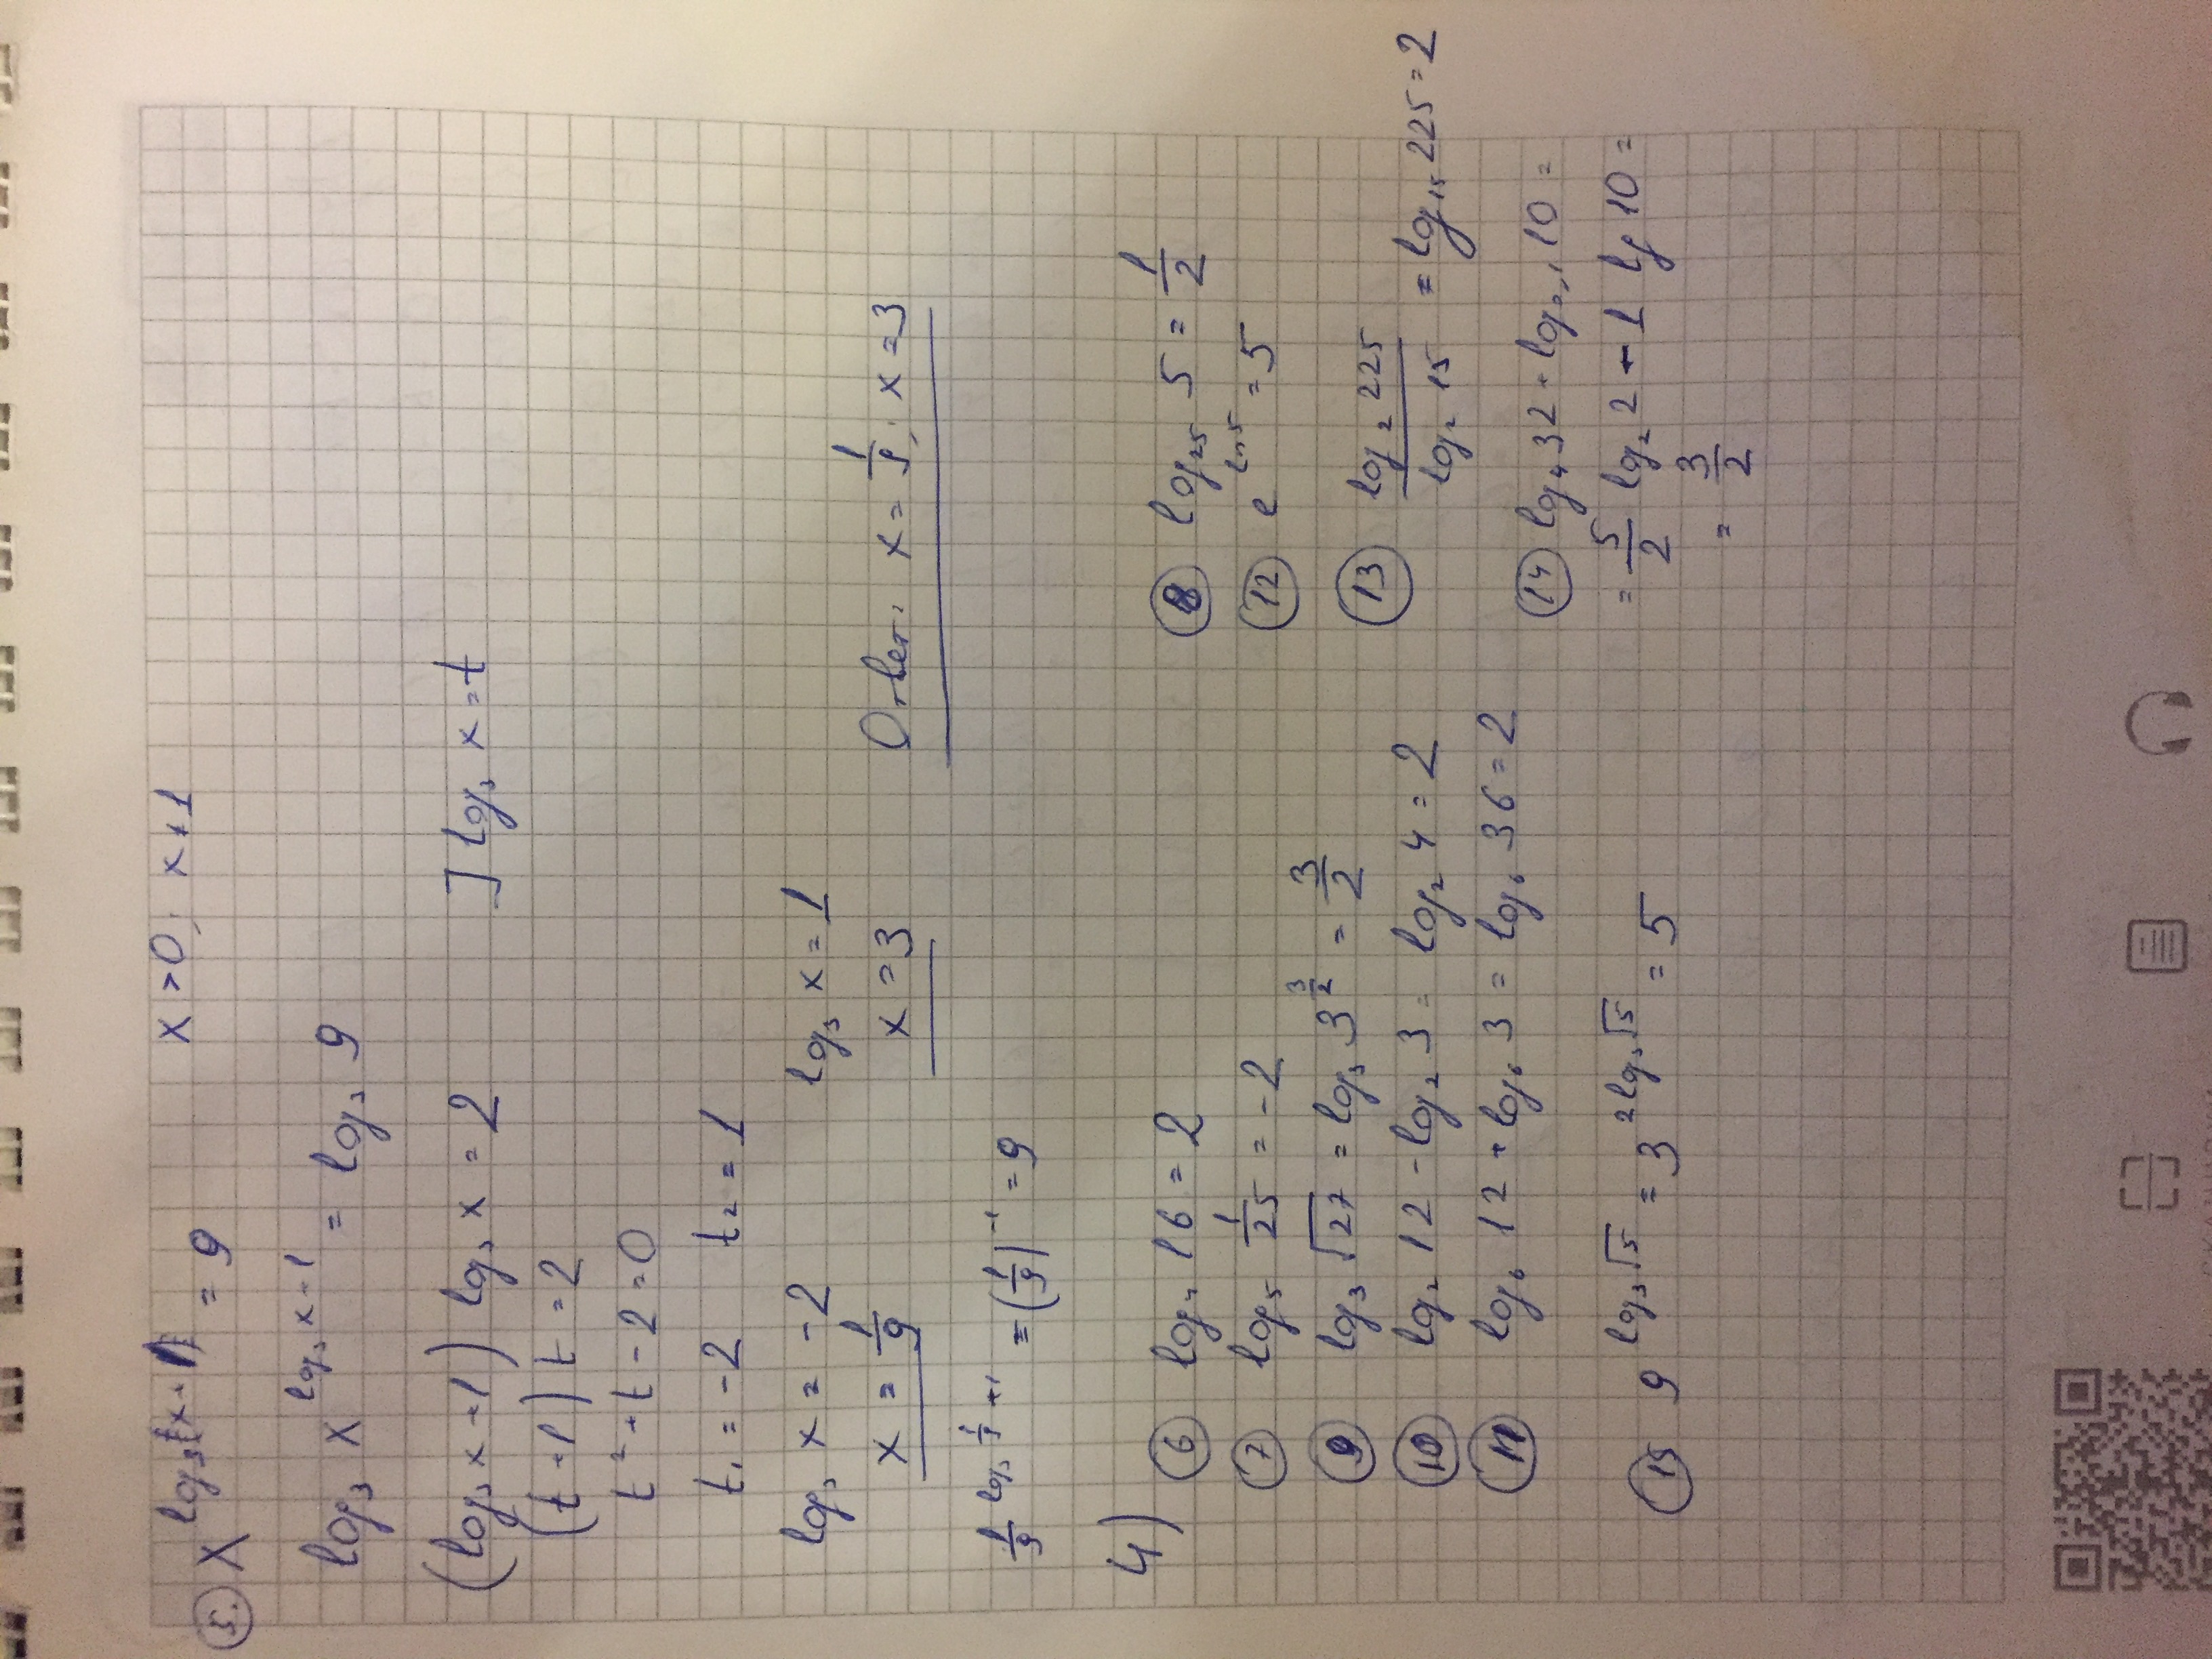 5. x^{log₃(x+1)} = 9    x > 0; x ≠ 1
log₃ x^{log₃ x+1} = log₃ 9
(log₃ x + 1) log₃ x = 2    ] log₃ x = t
(t + 1) t = 2
t² + t - 2 = 0
t₁ = -2    t₂ = 1
log₃ x = -2    log₃ x = 1
x = 1/9    x = 3    Ответ: x = 1/9; x = 3
1/9^{log₃ 1/9 + 1} = (1/9)^{-1} = 9
4)
6 log₄ 16 = 2
7 log₅ 1/25 = -2
9 log₃ √27 = log₃ 3^{3/2} = 3/2
10 log₂ 12 - log₂ 3 = log₂ 4 = 2
11 log₆ 12 + log₆ 3 = log₆ 36 = 2
15 9^{log₃ √5} = 3^{2 log₃ √5} = 5
8 log₂₅ 5 = 1/2
12 e^{ln 5} = 5
13 log₂ 225 / log₂ 15 = log₁₅ 225 = 2
14 log₄ 32 + log₀,₁ 10 =
= 5/2 log₂ 2 - 1 lg 10 =
= 3/2